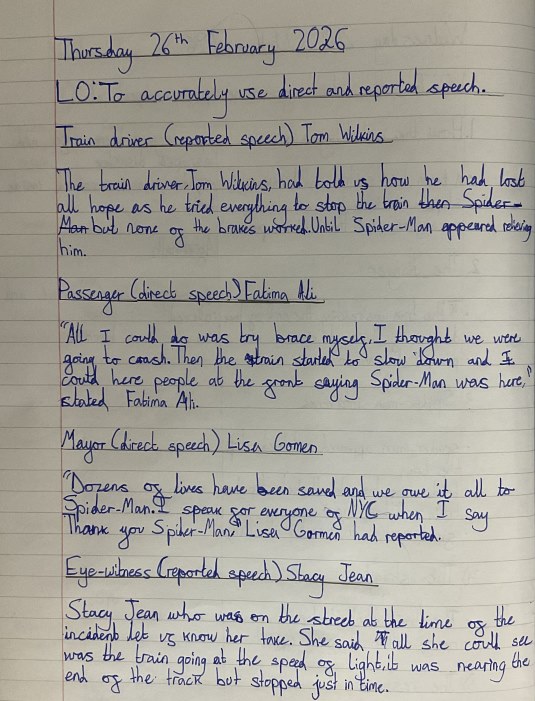 Thursday 26th February 2026
LO: To accurately use direct and reported speech.
Train driver (reported speech) Tom Wilkins
The train driver, Tom Wilkins, had told us how he had lost
all hope as he tried everything to stop the train then Spider-
Man but none of the brakes worked. Until Spider-Man appeared
him.
Passenger (direct speech) Fatima Ali
"All I could do was try brace myself, I thought we were
going to crash. Then the train started to slow down and I
could here people at the front saying Spider-Man was here,"
stated Fatima Ali.
Mayor (direct speech) Lisa Gomen
"Dozens of lives have been saved and we owe it all to
Spider-Man. I speak for everyone of NYC when I say
Thank you Spider-Man," Lisa Gormen had reported.
Eye-witness (reported speech) Stacy Jean
Stacy Jean who was on the street at the time of the
incident let us know her take. She said all she could see
was the train going at the speed of light. it was nearing the
end of the track but stopped just in time.